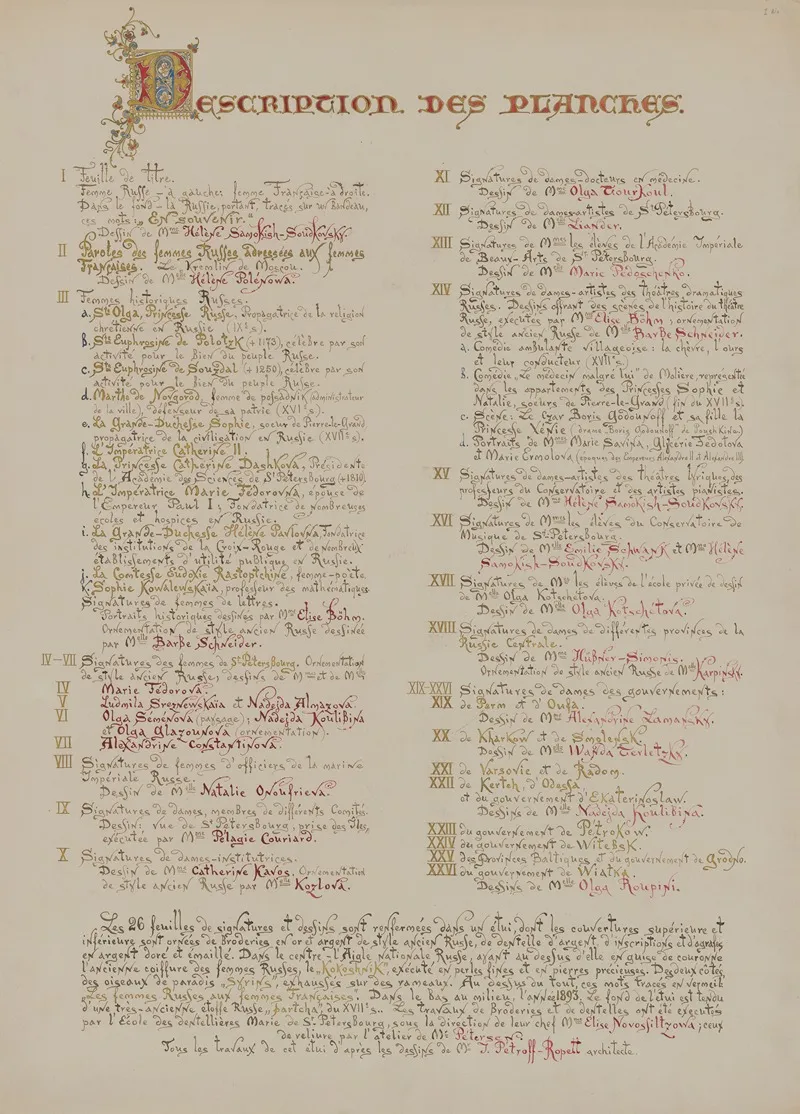 DESCRIPTION DES PLANCHES.
I Feuille de titre.
Femme Russe – à gauche; femme Française – à droite.
Dans le fond – la Russie, portant, tracés sur un bandeau,
ces mots: „EN SOUVENIR."
Dessin de Mme Hélène Samokish-Soudkovsky.
II Paroles des femmes Russes adressées aux femmes
Françaises. Le Kremlin de Moscou.
Dessin de Mlle Hélène Polénowa.
III Femmes historiques Russes.
a. Ste Olga, Princesse Russe. Propagatrice de la religion
chrétienne en Russie (IXe s).
b. Ste Euphrosine de Polotzk (+1173), célèbre par son
activité pour le bien du peuple Russe.
c. Ste Euphrosine de Souzdal (+1250), célèbre par son
activité pour le bien du peuple Russe.
d. Marthe de Novgorod, femme de possadnik (administrateur
de la ville), défenseur de sa patrie (XVIe s).
e. La Grande-Duchesse Sophie, soeur de Pierre-le-Grand
propagatrice de la civilisation en Russie (XVIIe s).
f. L'Impératrice Catherine II.
g. La Princesse Catherine Dashkova, Présidente
de l'Académie des Sciences de St Pétersbourg (+1810)
h. L'Impératrice Marie Fédorovna, épouse de
l'Empereur Paul I; Fondatrice de nombreuses
écoles et hospices en Russie.
i. La Grande-Duchesse Hélène Pavlovna, Fondatrice
des institutions de la Croix-Rouge et de nombreux
établissements d'utilité publique en Russie.
j. La Comtesse Eudoxie Rastoptchine, femme-poète
k. Sophie Kowalewskaïa, professeur des mathématiques
Signatures de femmes de lettres.
Portraits historiques dessinés par Mme Elise Böhm.
Ornementation de style ancien Russe dessinée
par Mlle Barbe Schneider.
IV–VII Signatures des femmes de St Pétersbourg. Ornementation
de style ancien Russe; dessins de Mme et de Mlle
IV Marie Fédorova.
V Ludmila Sreznewskaïa et Nadejda Almazova.
VI Olga Séménova (paysage); Nadejda Koulibina
et Olga Glazounova (ornementation).
VII Alexandrine Constantinova.
VIII Signatures de femmes d'officiers de la marine
Impériale Russe.
Dessin de Mlle Natalie Onoufrieva.
IX Signatures de dames, membres de différents Comités.
Dessin: vue de St Pétersbourg, prise des Iles,
exécutée par Mme Pélagie Couriard.
X Signatures de dames-institutrices.
Dessin de Mme Catherine Kavos. Ornementation
de style ancien Russe par Melle Kozlova.
XI Signatures de dames-docteurs en médecine.
Dessin de Mme Olga Tiourkoul.
XII Signatures de dames-artistes de St Pétersbourg.
Dessin de Mlle Liander.
XIII Signatures de Mmes les élèves de l'Académie Impériale
de Beaux-Arts de St Pétersbourg.
Dessin de Mlle Marie Fédoschenko.
XIV Signatures de dames-artistes des théâtres dramatiques
Russes. Dessins offrant des scènes de l'histoire du théâtre
Russe, exécutés par Mme Elise Böhm; ornementation
de style ancien Russe de Mlle Barbe Schneider.
a. Comédie ambulante villageoise: la chèvre, l'ours
et leur conducteur (XVIIe s.)
b. Comédie „Le médecin malgré lui" de Molière, représentée
dans les appartements des Princesses Sophie et
Natalie, soeurs de Pierre-le-Grand (fin du XVIIe s).
c. Scène: Le Czar Boris Godounoff et sa fille la
Princesse Xénie (drame Boris Godounoff de Poushkine.)
d. Portraits de Mmes Marie Savina, Glicérie Fédotova
et Marie Ermolova (époques des Empereurs Alexandre II et Alexandre III).
XV Signatures de dames-artistes des théâtres lyriques, des
professeurs du Conservatoire et des artistes pianistes.
Dessin de Mme Hélène Samokish-Soudkovsky.
XVI Signatures de Mmes les élèves du Conservatoire de
Musique de St-Pétersbourg.
Dessin de Mlle Emilie Schwank et Mme Hélène
Samokish-Soudkovsky.
XVII Signatures de Mes les élèves de l'école privée de dessin
de Mlle Olga Kotschétova.
Dessin de Mlle Olga Kotschétova.
XVIII Signatures de dames de différentes provinces de la
Russie Centrale.
Dessin de Mme Hübner-Simonis.
Ornementation de style ancien Russe de Mme Karpinsky.
XIX–XXVI Signatures de dames des gouvernements:
XIX de Parm et d'Oufa.
Dessin de Mme Alexandrine Lamansky.
XX de Kharkow et de Smolensk.
Dessin de Mlle Wanda Terletzky.
XXI de Varsovie et de Radom.
XXII de Kertch, d'Odessa
et du gouvernement d'Ekaterinoslaw.
Dessins de Mlle Nadejda Koulibina.
XXIII du gouvernement de Petrokow.
XXIV du gouvernement de Witebsk.
XXV des Provinces Baltiques et du gouvernement de Grodno.
XXVI du gouvernement de Wiatka.
Dessins de Mlle Olga Roupini.
Les 26 feuilles de signatures et dessins sont renfermées dans un étui, dont les couvertures supérieure et
inférieure sont ornées de broderies en or et argent de style ancien Russe, de dentelle d'argent, d'inscriptions et d'agrafes
en argent doré et émaillé. Dans le centre – l'Aigle nationale Russe, ayant au dessus d'elle en guise de couronne
l'ancienne coiffure des femmes Russes, le „Kokoshnik", exécuté en perles fines et en pierres précieuses. Des deux côtés
des oiseaux de paradis „Syrins", exhaussés sur des rameaux. Au dessus du tout, ces mots tracés en vermeil
„Les femmes Russes aux femmes Françaises. Dans le bas au milieu, l'année 1893. Le fond de l'étui est tendu
d'une très-ancienne étoffe Russe „partcha", du XVIIe s.. Les travaux de broderies et de dentelles ont été exécutés
par l'Ecole des dentellières Marie de St Pétersbourg, sous la direction de leur chef Mme Elise Novossiltzowa; ceux
de reliure par l'atelier de Mr Petersen
Tous les travaux de cet étui d'après les dessins de Mr J. Petroff-Ropett architecte.